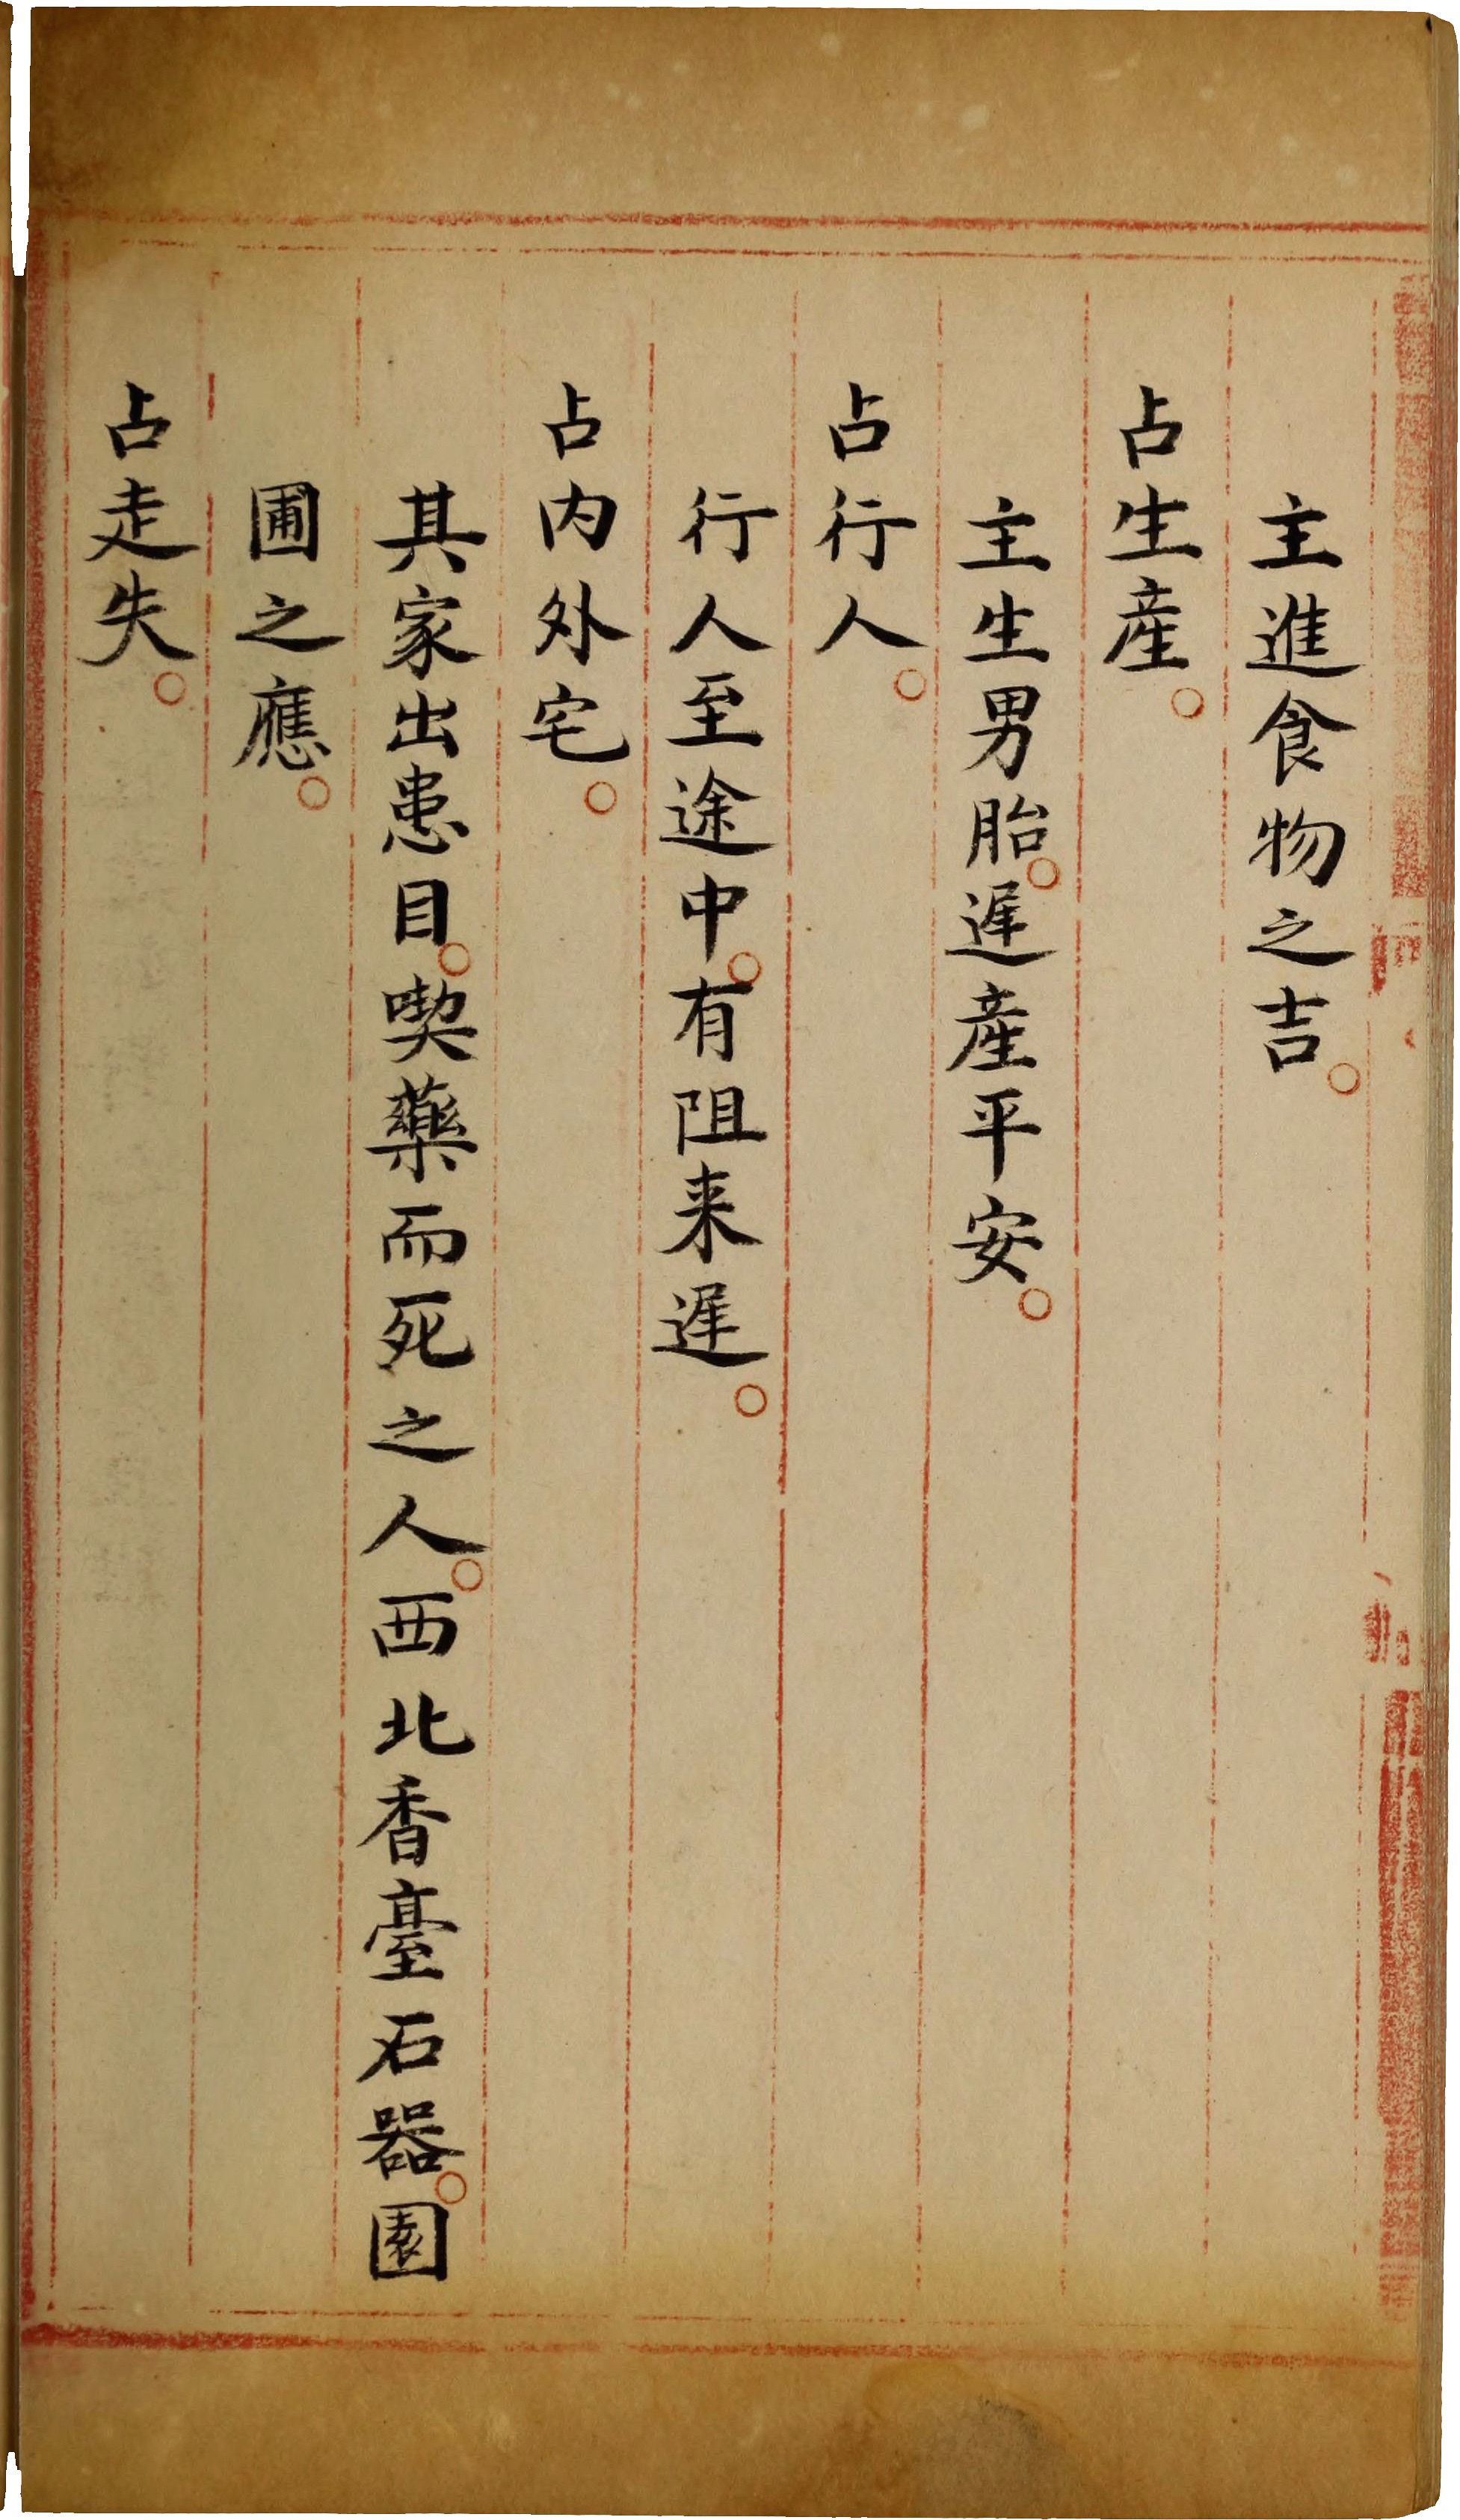 主進食物之吉。
占生產。
主生男胎。遲產平安。
占行人。
行人至途中。有阻来遲。
占内外宅。
其家出患目。喫藥而死之人。西北香臺石器。園
圃之應。
占走失。